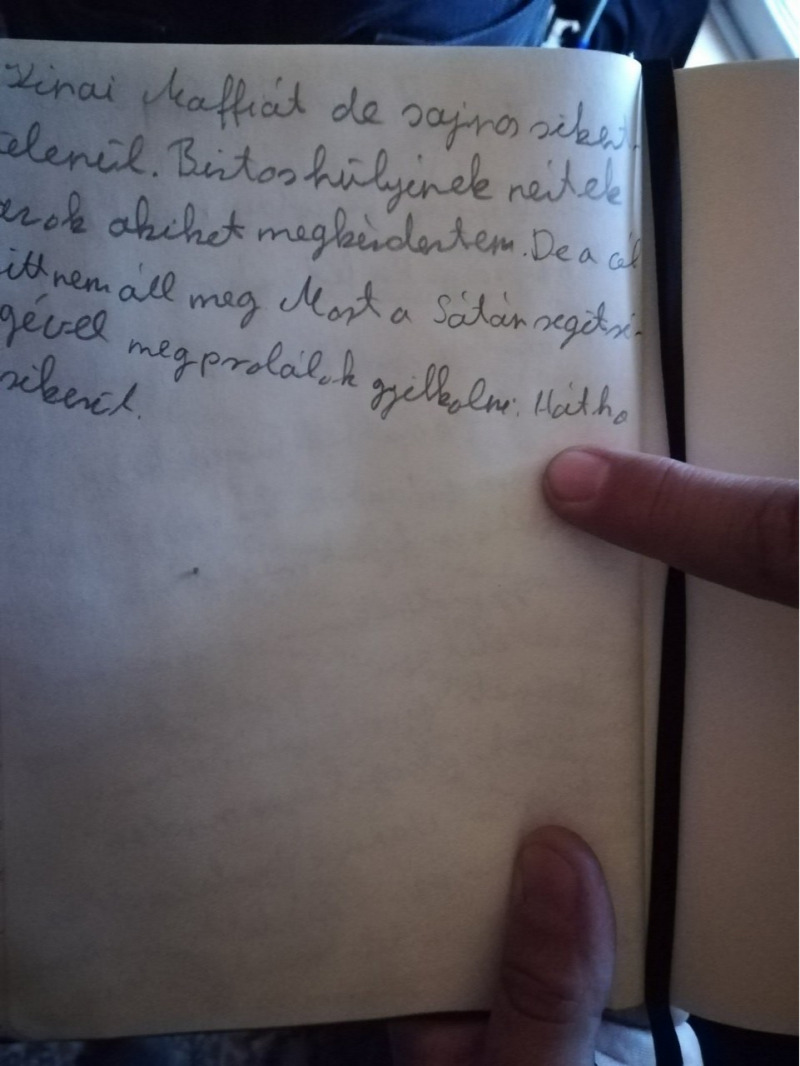 Kinai Maffiát de sajnos siker-
telenül. Biztos hülyének néztek
azok akiket megkérdeztem. De a cél
itt nem áll meg Most a Sátán segítsé-
gével megprobálok gyilkolni. Hátha
sikerül.